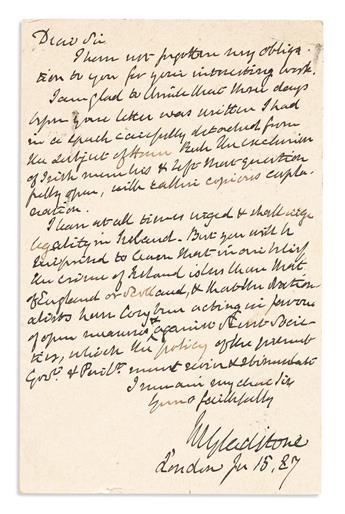 Dear Sir
I have not forgotten my obliga
tion to you for your interesting work.
I am glad to think that three days
before your letter was written I had
in a speech carefully detached from
the subject of Home Rule the exclusion
of Irish members & left that question
fully open, with rather copious expla-
nation.
I have at all times urged & shall urge
legality in Ireland. But you will be
surprised to learn that in our belief
the crime of Ireland is less than that
of England or Scotland, & that the Nation
alists have long been acting in favour
of open measures & against Secret Socie-
ties, which the policy of the present
Govt. & Parlt. must revive & stimulate
I remain my dear Sir
Yours faithfully
WGladstone
London Jn 15. 87